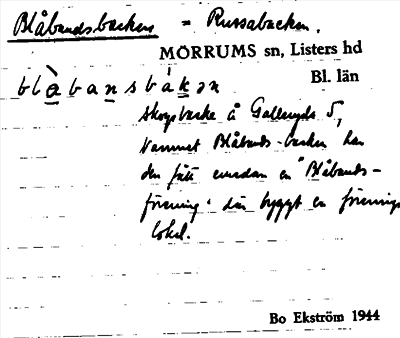 Blåbandsbacken = Russabacken.
MÖRRUMS sn, Listers hd
Bl. län
blàbansbákən
Skogsbacke å Galleryds 5,
Namnet Blåbands-backen har
den fått emedan en "Blåbands-
förening" där byggt en förenings
lokal.
Bo Ekström 1944